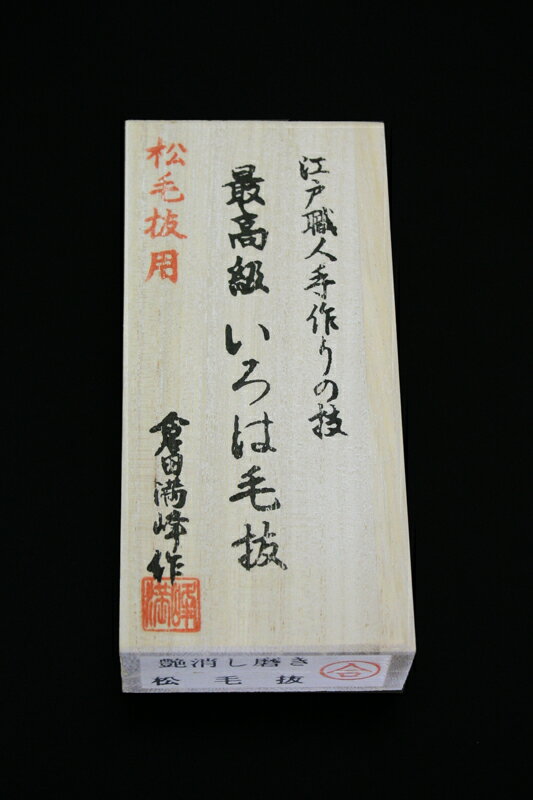 江戸職人手作りの技
最高級いろは毛抜
松毛抜用
倉田満峰作
満峰
艶消し磨き
松毛抜
合